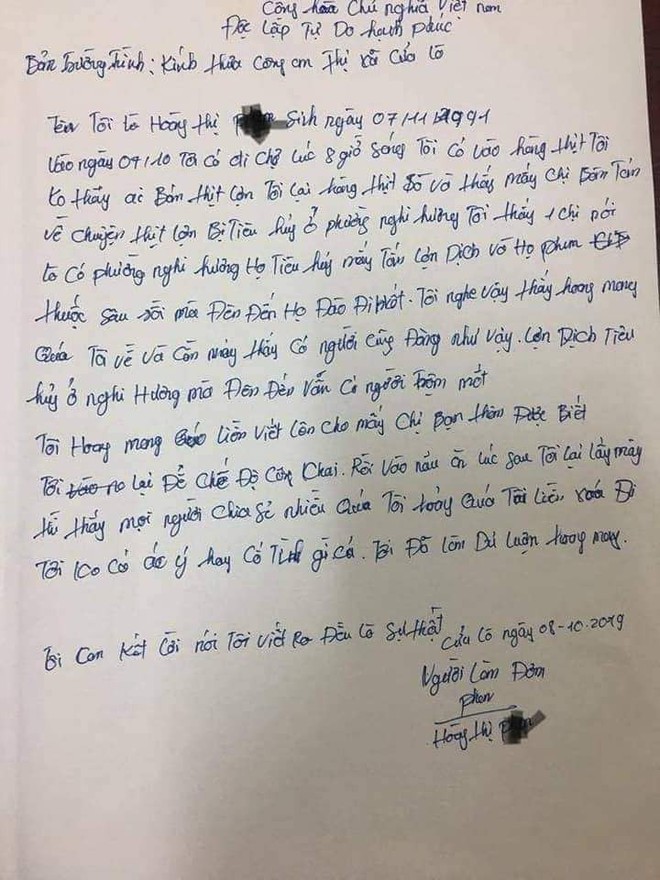 Cộng hòa Chủ nghĩa Việt nam
Độc Lập Tự Do hạnh phúc
Bản Trường Trình: Kính thưa Công an Thị xã Cửa lò
Tên Tôi là Hoàng thị Sinh ngày 07/11/1991
Vào ngày 07/10 Tôi có đi chợ lúc 8 giờ sáng Tôi có vào hàng thịt Tôi
ko thấy ai Bán thịt lợn Tôi lại hàng thịt Bò và thấy mấy chị Bán Tán
về chuyện thịt lợn Bị Tiêu hủy ở phường nghi hương Tôi thấy 1 chị nói
là Có phường nghi hương Họ Tiêu hủy mấy Tấn lợn Dịch và Họ phun
thuốc sâu rồi mà Đêm Đến Họ Đào Đi Mất. Tôi nghe vậy thấy hoang mang
Quá Tôi về và Cầm máy thấy Có người Cũng Đăng như vậy. Lợn Dịch Tiêu
hủy ở nghi Hương mà Đêm Đến vẫn Có người trộm mất
Tôi Hoang mang liền viết lên cho mấy chị Bạn thân Được Biết
Tôi lại Để Chế Độ Công Khai. Rồi vào nấu ăn lúc sau Tôi lại lấy máy
thì thấy mọi người chia sẻ nhiều Quá Tôi hoảng Quá Tôi liền xoá Đi
Tôi ko Có ác ý hay Cố Tình gì cả. Tôi Đã làm Dư luận hoang mang.
Tôi Cam Kết lời nói Tôi viết Ra Đều là Sự thật
Cửa lò ngày 08-10-2019
Người Làm Đơn
Hoàng thị